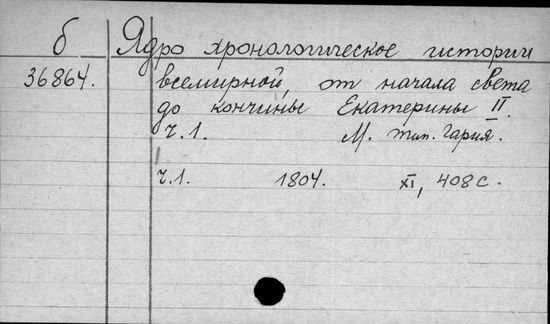 б Ядро хронологическое истории
36864. всемирной, от начала света
до кончины Екатерины II.
ч.1. М. тип. Гария.
ч.1. 1804. XI, 408 с.